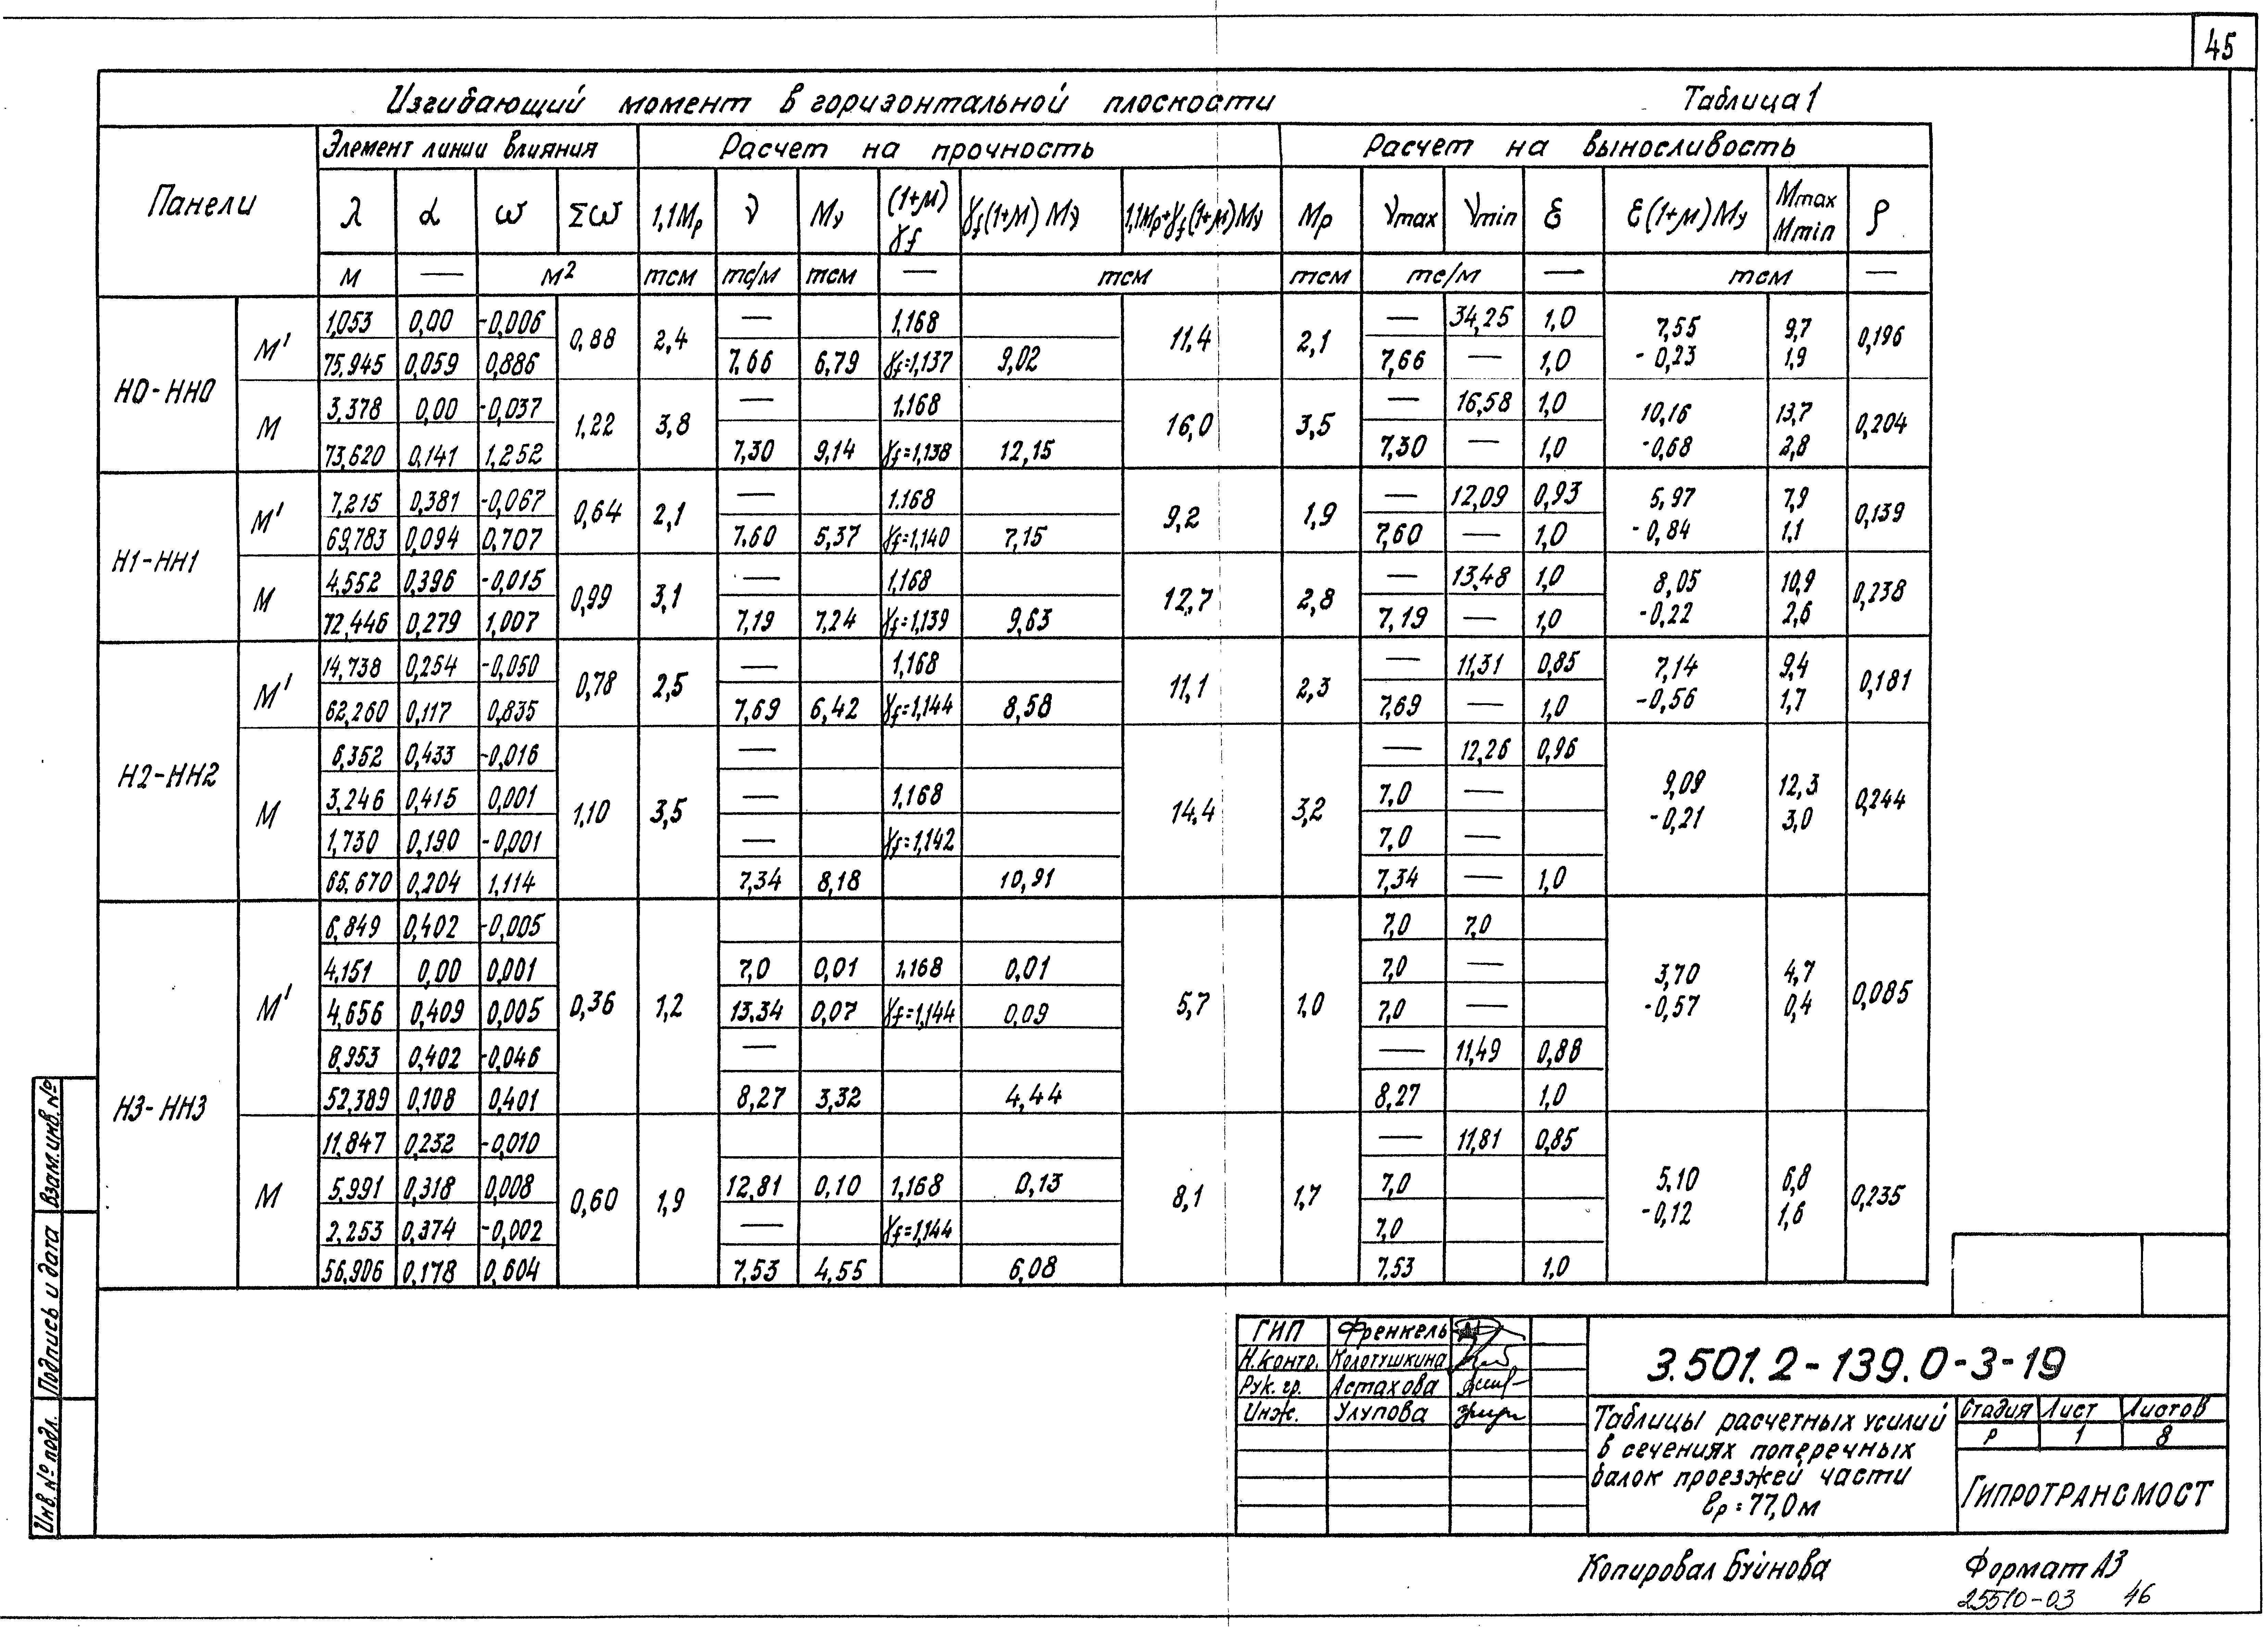 45
Изгибающий момент в горизонтальной плоскости Таблица 1
Панели Элемент линии влияния Расчет на прочность Расчет на выносливость
λ α ω Σω 1,1Mр ν Mν (1+μ) γf γf(1+μ)Mν 1,1Mр+γf(1+μ)Mν Mр νmax νmin ε ε(1+μ)Mν Mmax Mmin ρ
м — м² тсм тс/м тсм — тсм тсм тс/м — тсм —
Н0-НН0
M'
1,053 0,00 -0,006 0,88 2,4 — 1,168 11,4 2,1 — 34,25 1,0 7,55 9,7 0,196
75,945 0,059 0,886 7,66 6,79 γf=1,137 9,02 7,66 — 1,0 -0,23 1,9
M
3,378 0,00 -0,037 1,22 3,8 — 1,168 16,0 3,5 — 16,58 1,0 10,16 13,7 0,204
73,620 0,141 1,252 7,30 9,14 γf=1,138 12,15 7,30 — 1,0 -0,68 2,8
Н1-НН1
M'
7,215 0,381 -0,067 0,64 2,1 — 1.168 9,2 1,9 — 12,09 0,93 5,97 7,9 0,139
69,783 0,094 0,707 7,60 5,37 γf=1,140 7,15 7,60 — 1,0 -0,84 1,1
M
4,552 0,396 -0,015 0,99 3,1 — 1,168 12,7 2,8 — 13,48 1,0 8,05 10,9 0,238
72,446 0,279 1,007 7,19 7,24 γf=1,139 9,63 7,19 — 1,0 -0,22 2,6
Н2-НН2
M'
14,738 0,254 -0,050 0,78 2,5 — 1,168 11,1 2,3 — 11,31 0,85 7,14 9,4 0,181
62,260 0,117 0,835 7,69 6,42 γf=1,144 8,58 7,69 — 1,0 -0,56 1,7
M
6,352 0,433 -0,016 — — 12,26 0,96
3,246 0,415 0,001 1,10 3,5 — 1,168 14,4 3,2 7,0 — 9,09 12,3 0,244
1,730 0,190 -0,001 — γf=1,142 7,0 — -0,21 3,0
65,670 0,204 1,114 7,34 8,18 10,91 7,34 — 1,0
Н3-НН3
M'
6,849 0,402 -0,005 7,0 7,0
4,151 0,00 0,001 7,0 0,01 1,168 0,01 7,0 — 3,70 4,7
4,656 0,409 0,005 0,36 1,2 13,34 0,07 γf=1,144 0,09 5,7 1,0 7,0 — -0,57 0,4 0,085
8,953 0,402 -0,046 — — 11,49 0,88
52,389 0,108 0,401 8,27 3,32 4,44 8,27 1,0
M
11,847 0,232 -0,010 — 11,81 0,85
5,991 0,318 0,008 0,60 1,9 12,81 0,10 1,168 0,13 8,1 1,7 7,0 5,10 6,8 0,235
2,253 0,374 -0,002 — γf=1,144 7,0 -0,12 1,6
56,906 0,178 0,604 7,53 4,55 6,08 7,53 1,0
ГИП Френкель
Н.контр. Колотушкина
Рук. гр. Астахова
Инж. Улупова
3.501.2-139.0-3-19
Таблицы расчетных усилий
в сечениях поперечных
балок проезжей части
ℓр=77,0м
Стадия Лист Листов
Р 1 8
Гипротрансмост
Инв. № подл. Подпись и дата Взам.инв. №
Копировал Буйнова Формат А3
25510-03 46